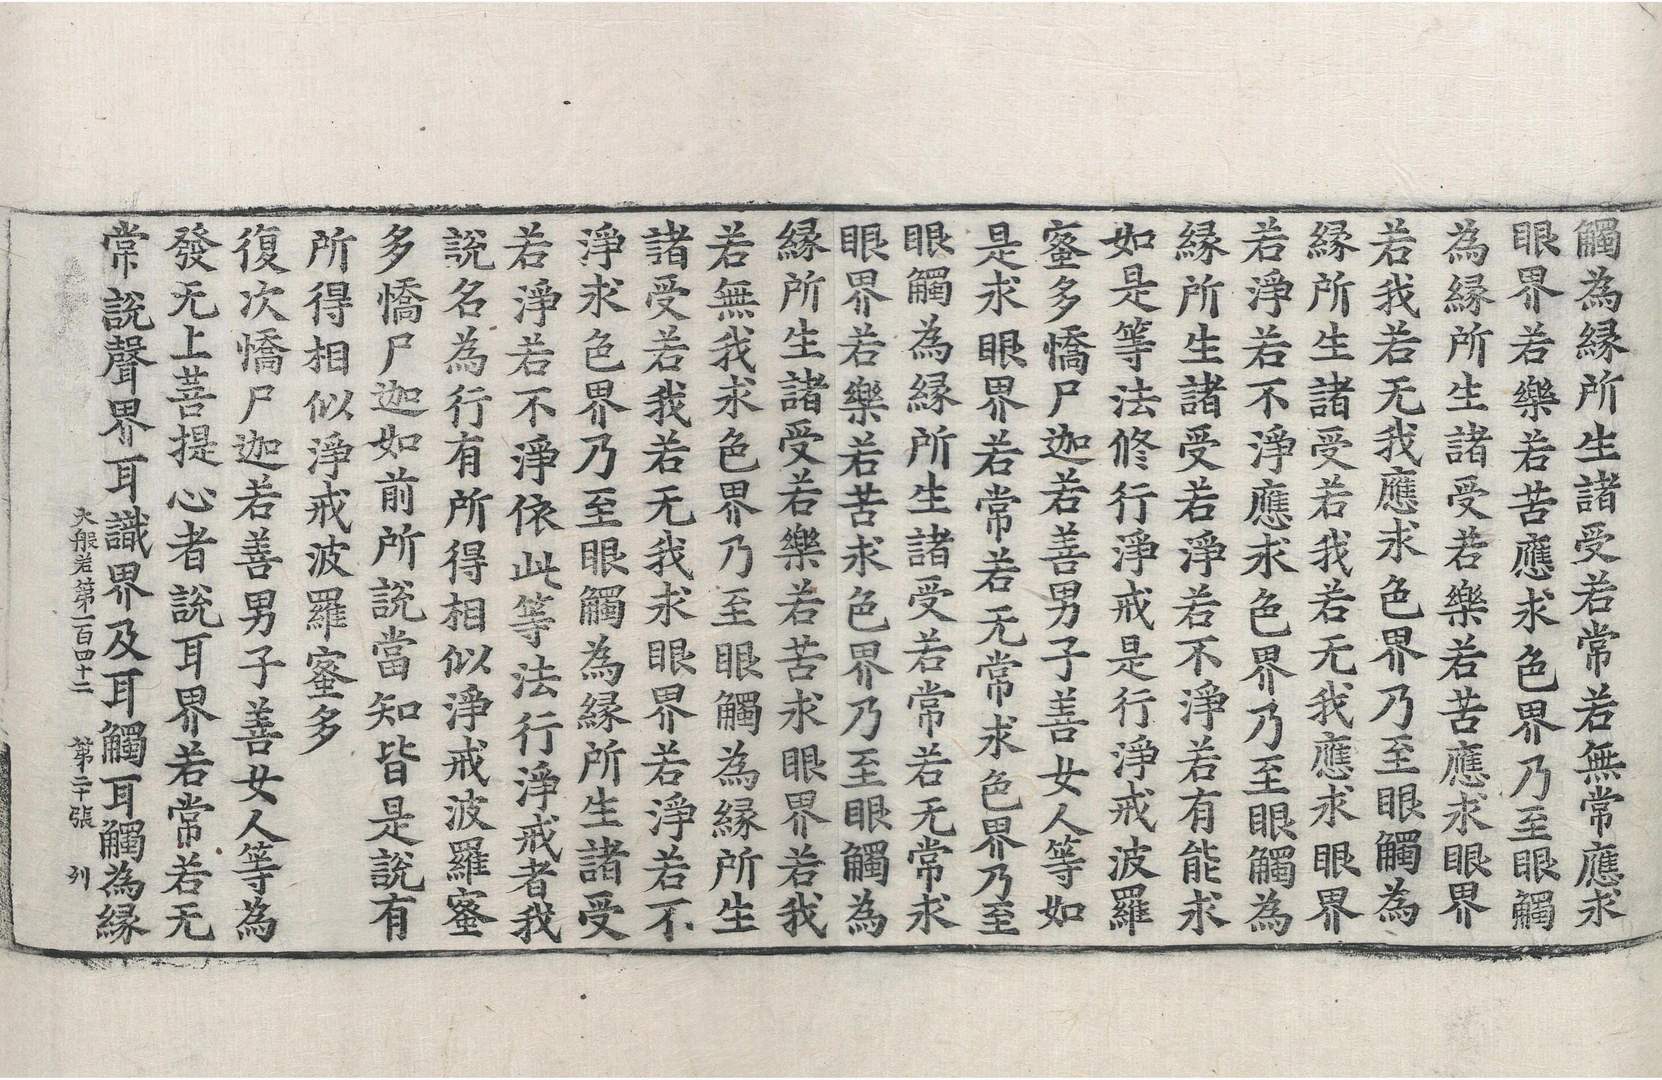 觸為緣所生諸受若常若無常應求
眼界若樂若苦應求色界乃至眼觸
為緣所生諸受若樂若苦應求眼界
若我若无我應求色界乃至眼觸為
緣所生諸受若我若无我應求眼界
若淨若不淨應求色界乃至眼觸為
緣所生諸受若淨若不淨若有能求
如是等法修行淨戒是行淨戒波羅
蜜多憍尸迦若善男子善女人等如
是求眼界若常若无常求色界乃至
眼觸為緣所生諸受若常若无常求
眼界若樂若苦求色界乃至眼觸為
緣所生諸受若樂若苦求眼界若我
若無我求色界乃至眼觸為緣所生
諸受若我若无我求眼界若淨若不
淨求色界乃至眼觸為緣所生諸受
若淨若不淨依此等法行淨戒者我
說名為行有所得相似淨戒波羅蜜
多憍尸迦如前所說當知皆是說有
所得相似淨戒波羅蜜多
復次憍尸迦若善男子善女人等為
發无上菩提心者說耳界若常若无
常說聲界耳識界及耳觸耳觸為緣
大般若第一百四十二 第二十張 列